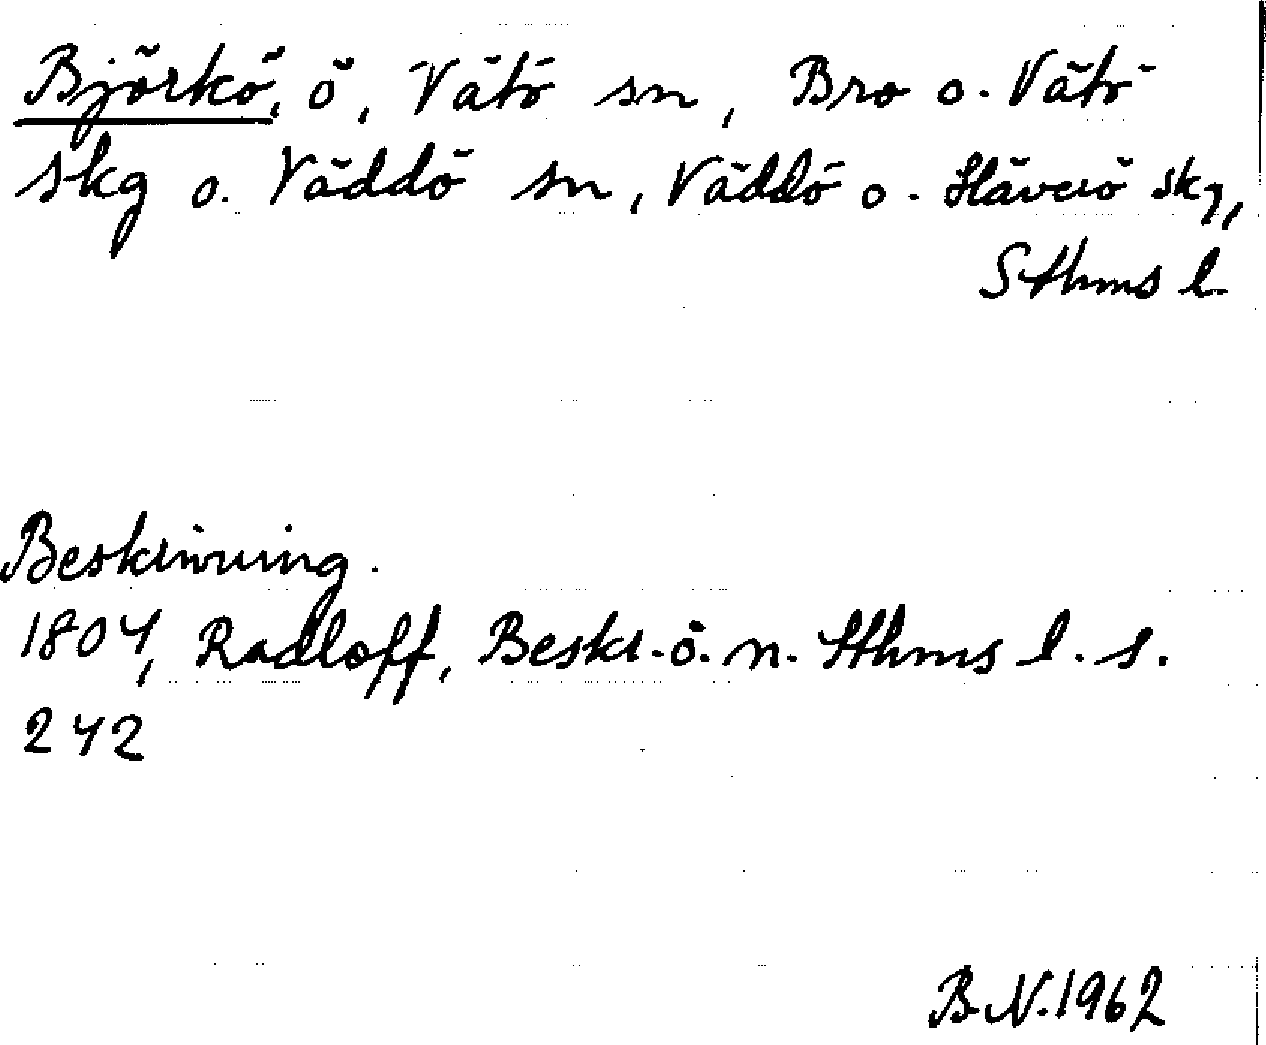 Björkö, ö, Vätö sn, Bro o. Vätö
skg o. Väddö sn, Väddö o. Häverö skg,
Sthms l.
Beskrivning.
1804, Radloff, Beskr. ö. n. Sthms l. s.
242
B.N. 1962